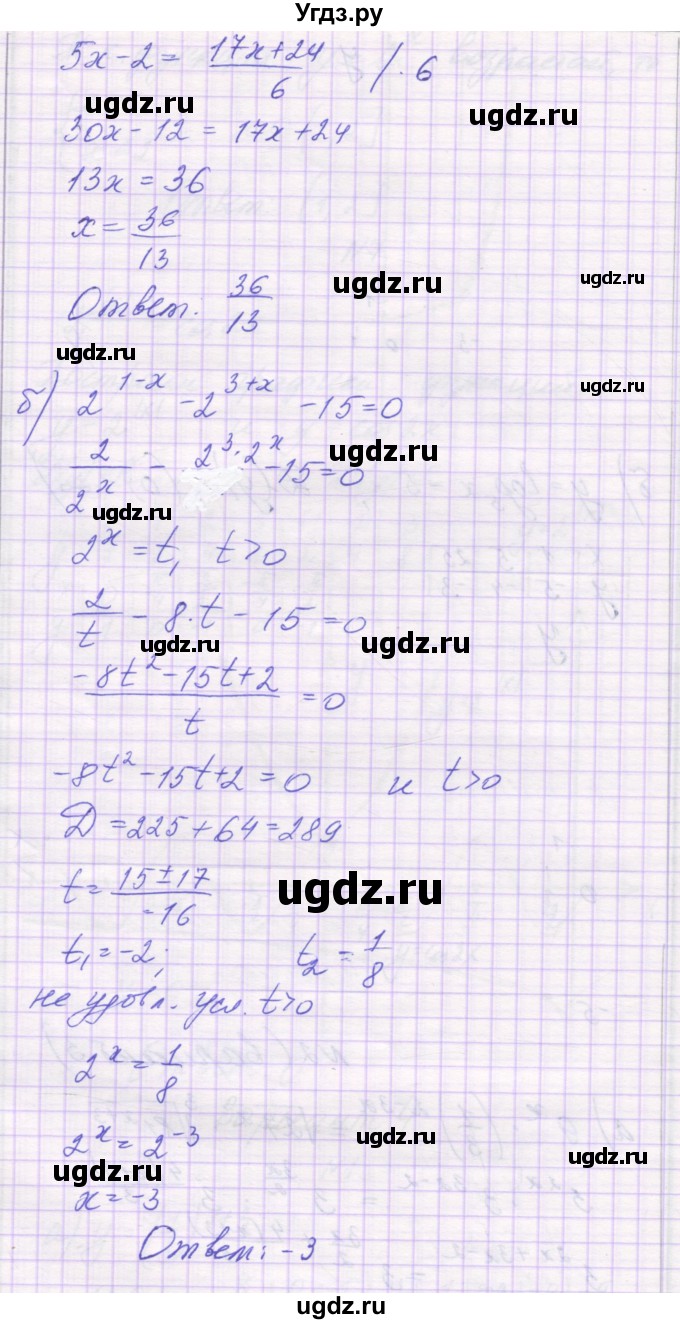 Угдз.ру
5x-2 = 17x+24/6 /·6
ugdz.ru ugdz.ru
30x-12 = 17x+24
13x = 36
x = 36/13
ugdz.ru ugdz.ru
Ответ: 36/13
ugdz.ru ugdz.ru
б) 2^(1-x) - 2^(3+x) - 15 = 0
ugdz.ru
2/2^x - 2^3·2^x - 15 = 0
ugdz.ru
2^x = t, t>0
2/t - 8·t - 15 = 0
ugdz.ru ugdz.ru
-8t²-15t+2/t = 0
-8t²-15t+2 = 0 и t>0
Д = 225+64 = 289
t = 15±17/-16
ugdz.ru
t₁ = -2; t₂ = 1/8
не удовл. усл. t>0
2^x = 1/8
2^x = 2^(-3)
ugdz.ru ugdz.ru
x = -3
Ответ: -3
ugdz.ru ugdz.ru
ugdz.ru